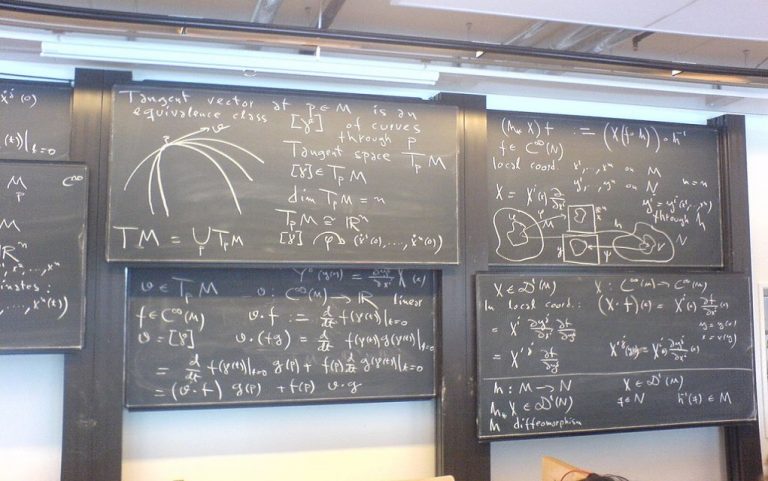 ẋⁱ(0)
(t))|_{t=0}
M C^∞
P
M
ℝⁿ
, ..., xⁿ(t))
Tangent vector at p ∈ M is an
equivalence class [γ] of curves
through p
v
P
Tangent space T_p M
[γ] ∈ T_p M
dim T_p M = n
T_p M ≅ ℝⁿ
TM = ∪_p T_p M
[γ] φ (ẋ¹(0), ..., ẋⁿ(0))
v ∈ T_p M
v : C^∞(M) → ℝ linear
f ∈ C^∞(M) v · f := d/dt f(γ(t))|_{t=0}
v = [γ] v · (fg) = d/dt f(γ(t)) g(γ(t))|_{t=0}
= d/dt f(γ(t))|_{t=0} g(p) + f(p) d/dt g(γ(t))|_{t=0}
= (v · f) g(p) + f(p) v · g
(h_* X) f = (X(f · h)) · h⁻¹
f ∈ C^∞(N)
local coord. x¹, ..., xⁿ on M
y¹, ..., yⁿ on N n = n
X = Xⁱ(x) ∂/∂xⁱ
yⁱ = yⁱ(x¹, ..., xⁿ)
through h
U φ M h ψ V N
X ∈ D¹(M) X : C^∞(M) → C^∞(M)
In local coord.: (X · f)(x) = Xⁱ(x) ∂f/∂xⁱ (x)
= Xⁱ ∂yʲ/∂xⁱ ∂f/∂yʲ
y = y(x)
x = x(y)
= X'ʲ ∂f/∂yʲ
X'ʲ(y) = Xⁱ(x) ∂yʲ/∂xⁱ (x)
h : M → N X ∈ D¹(M)
h_* X ∈ D¹(N) z ∈ N h⁻¹(z) ∈ M
M diffeomorphism